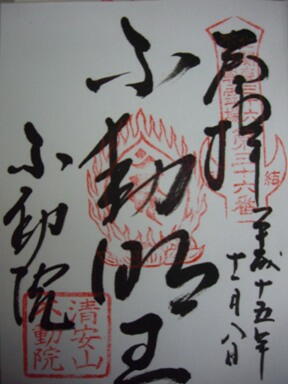 奉拝
平成十五年
十一月八日
不動明王
不動院
清安山
不動院
三十六番
結